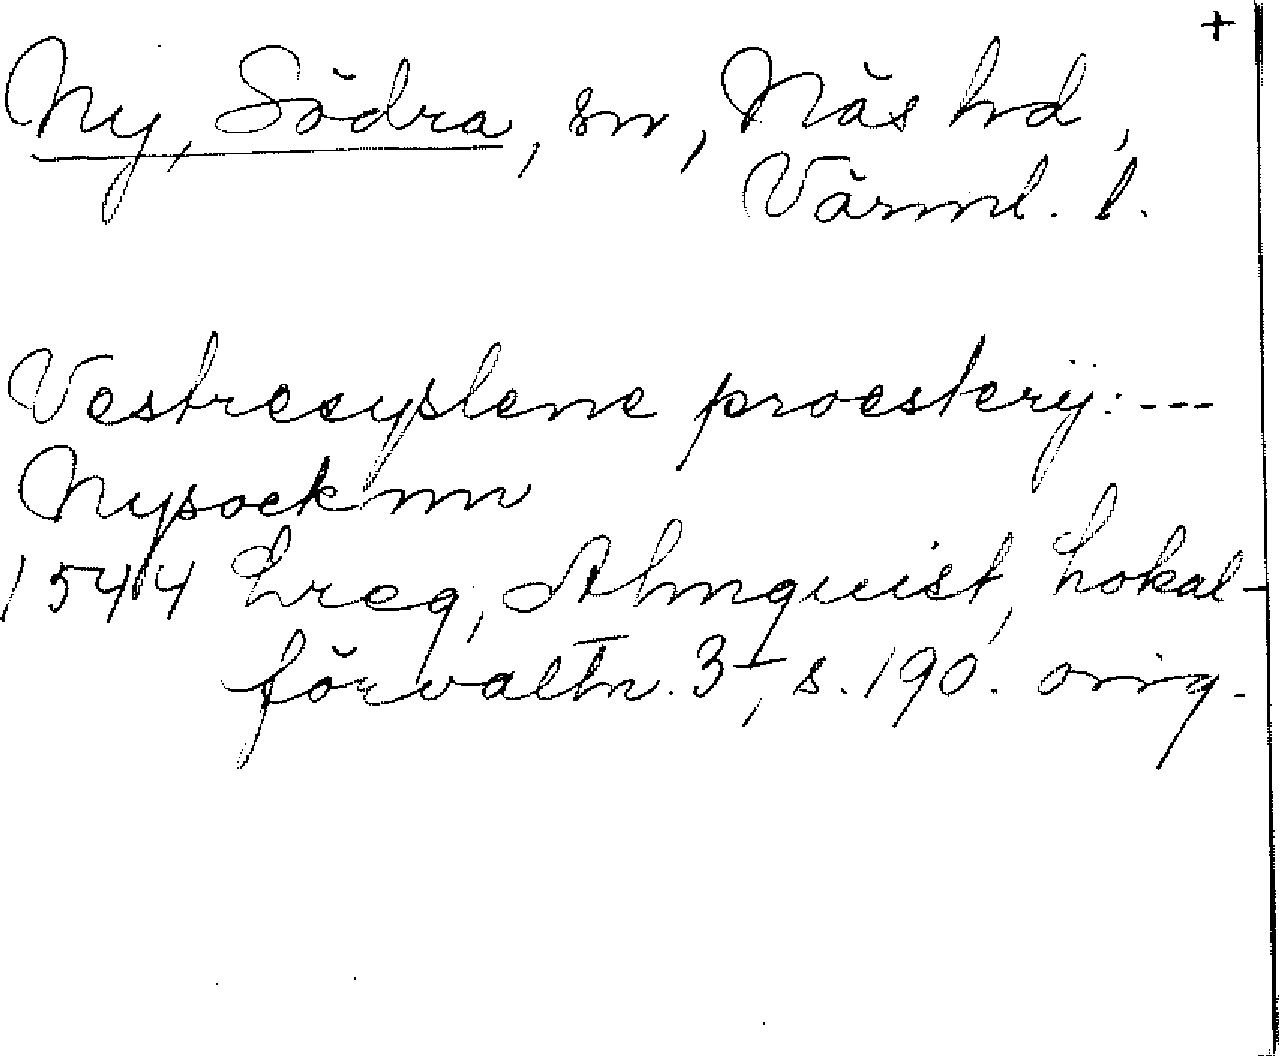 +
Ny, Södra, sn, Näs hd,
Värml. l.
Vestresyslene proesterij: ---
Nysocknn
1544 Lreg, Almquist, Lokal-
förvaltn. 3, s. 190. orig.